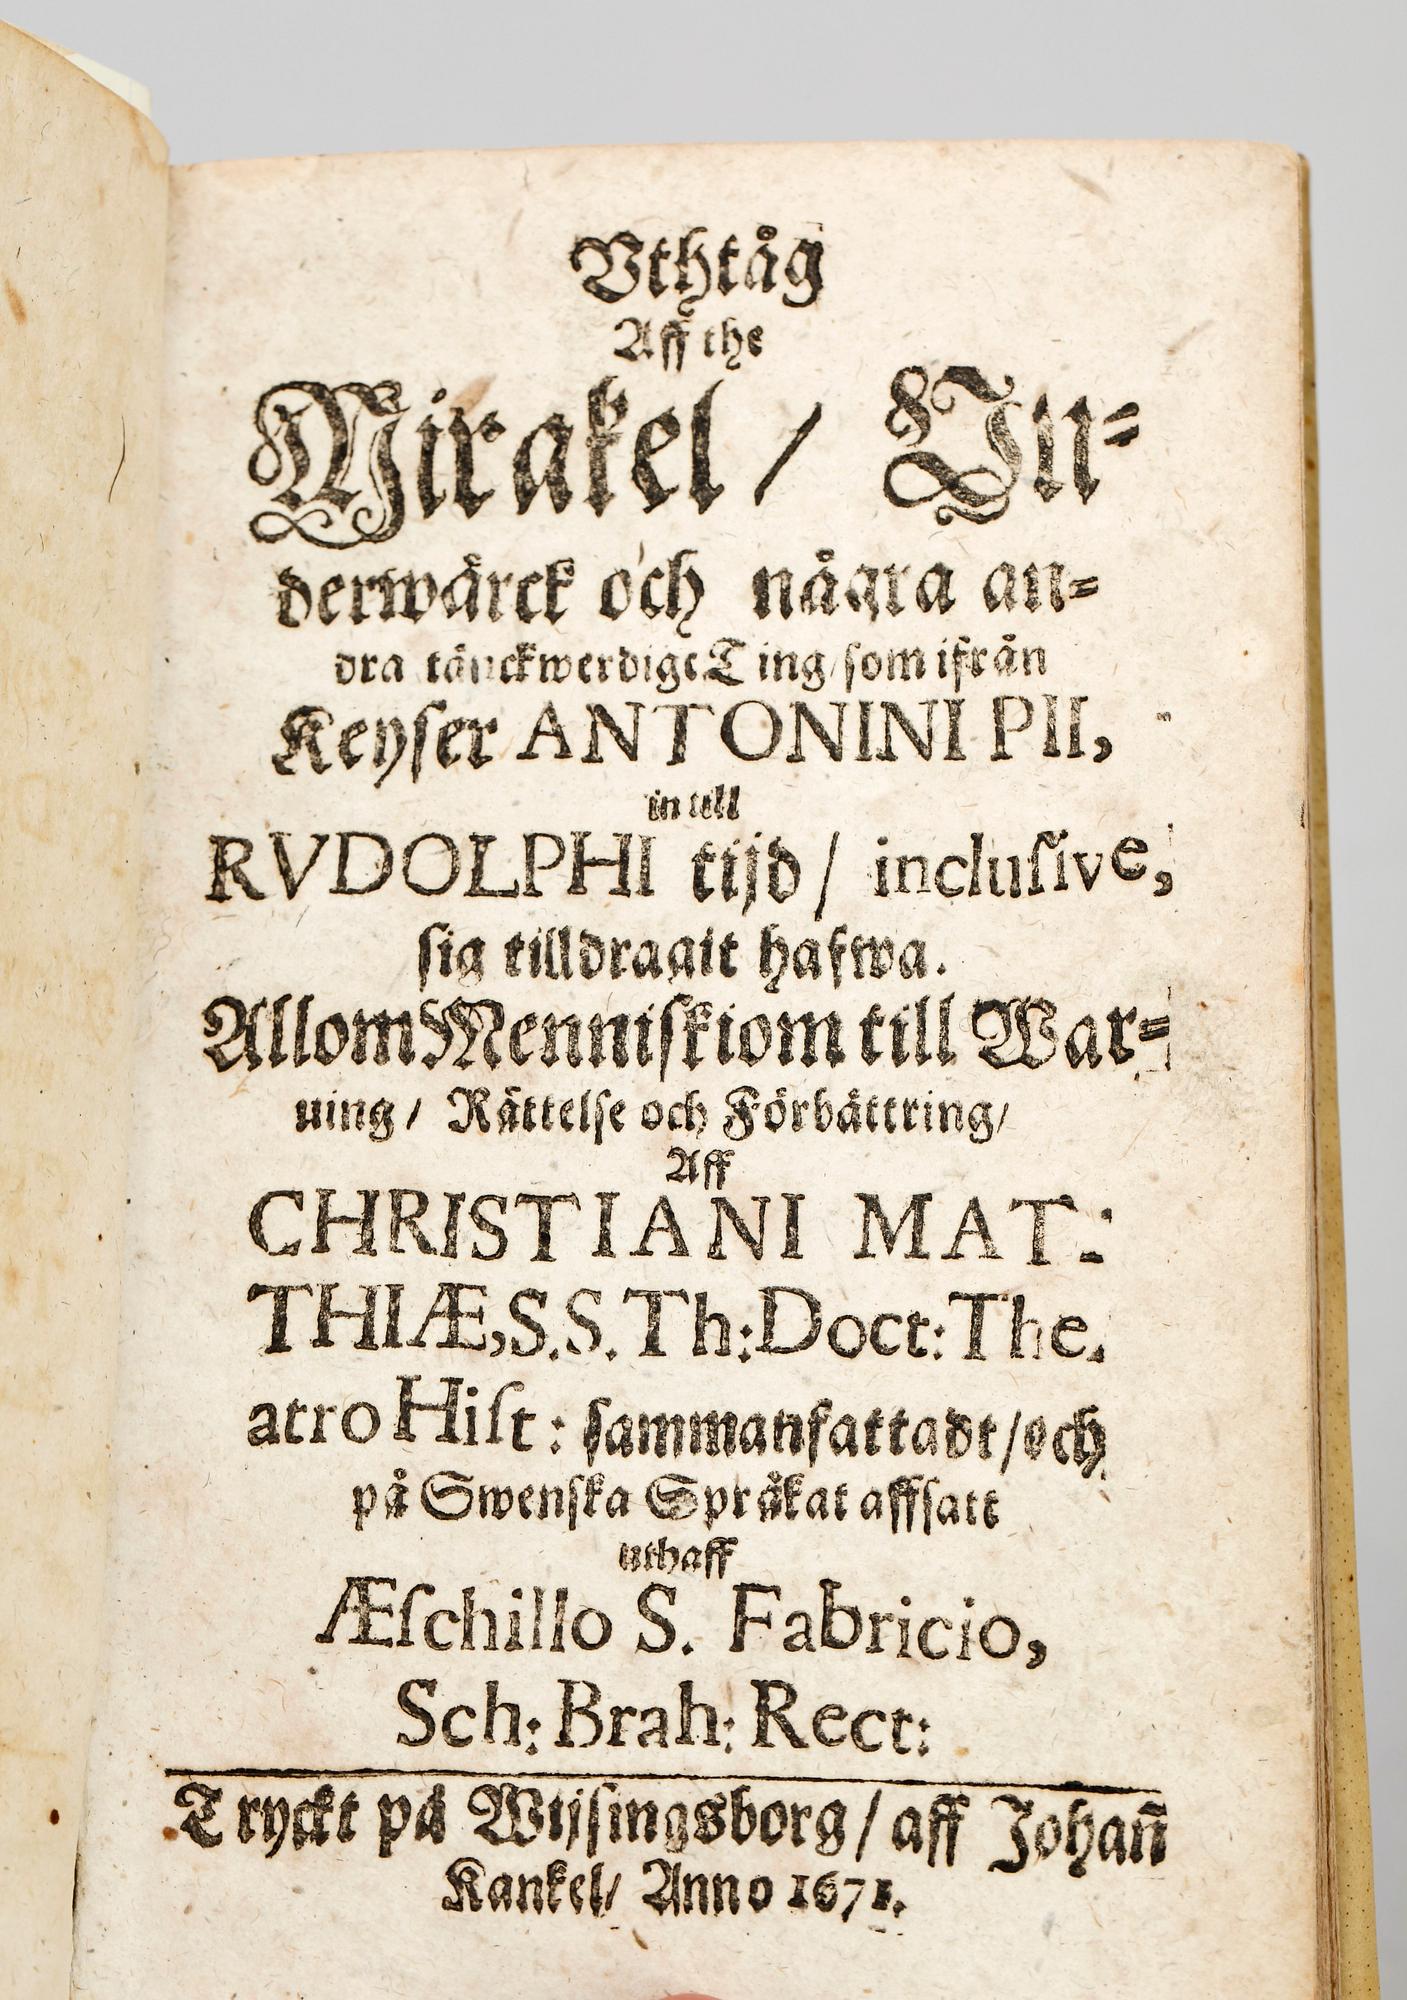 Vthtåg
Aff the
Mirakel / Vn-
derwärck och några an-
dra tänckwerdige Ting/som ifrån
Keyser ANTONINI PII,
in till
RVDOLPHI tijd / inclusive,
sig tilldragit hafwa.
Allom Menniskiom till War-
ning / Rättelse och Förbättring/
Aff
CHRISTIANI MAT:
THIÆ,S.S.Th:Doct:The.
atro Hist: sammanfattadt/och
på Swenska Språkat affsatt
uthaff
Æschillo S. Fabricio,
Sch: Brah: Rect:
Tryckt på Wijsingsborg / aff Johañ
Kankel/ Anno 1671.